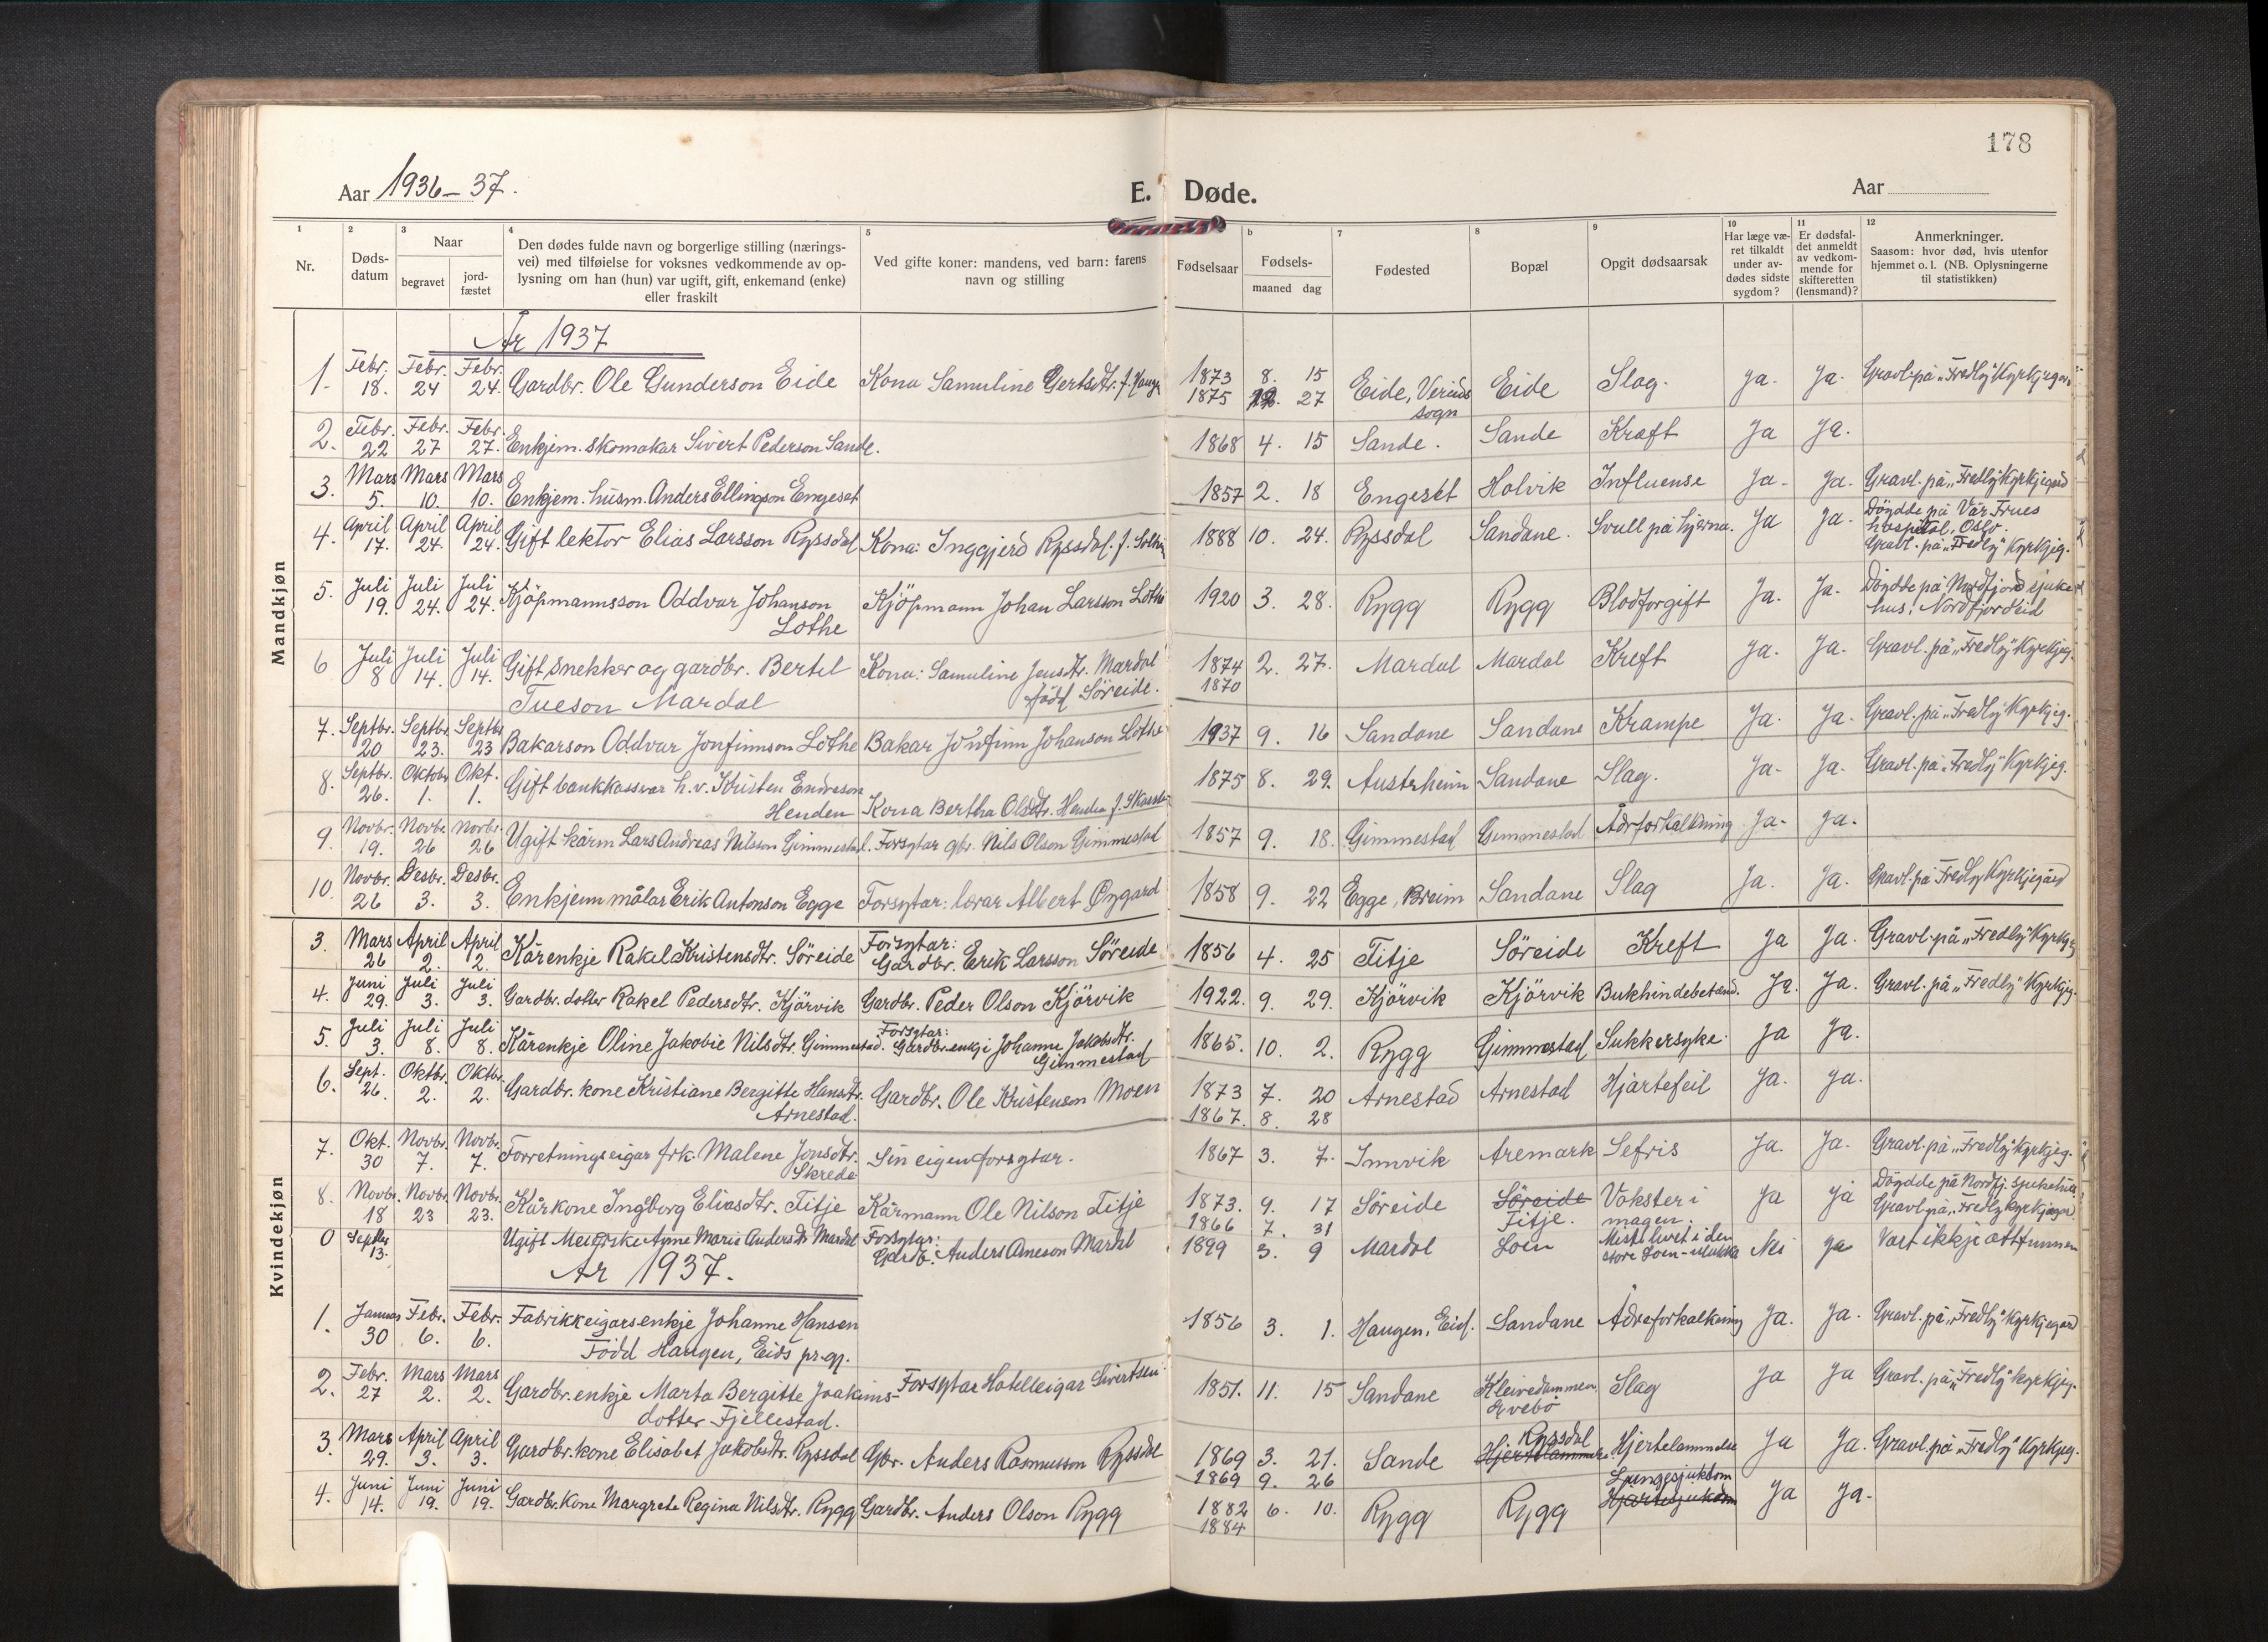 178
Aar 1936-37.
E. Døde.
Aar
1 2 3 4 5 6 7 8 9 10 11 12
Nr.
Døds-
datum
Naar
begravet
jord-
fæstet
Den dødes fulde navn og borgerlige stilling (nærings-
vei) med tilføielse for voksnes vedkommende av op-
lysning om han (hun) var ugift, gift, enkemand (enke)
eller fraskilt
Ved gifte koner: mandens, ved barn: farens
navn og stilling
Fødselsaar
Fødsels-
maaned dag
Fødested
Bopæl
Opgit dødsaarsak
Har læge væ-
ret tilkaldt
under av-
dødes sidste
sygdom?
Er dødsfal-
det anmeldt
av vedkom-
mende for
skifteretten
(lensmand)?
Anmerkninger.
Saasom: hvor død, hvis utenfor
hjemmet o. l. (NB. Oplysningerne
til statistikken)
Mandkjøn
År 1937
1. Febr. 18. Febr. 24 Febr. 24. Gardbr. Ole Gunderson Eide Kona Samuline Gertsdtr. f. Hauge 1873 8. 15 Eide, Vereids Eide Slag. ja. Ja. Gravl. på "Fredly" Kyrkjegard
1875 12. 27 sogn
2. Febr. 22 Febr. 27 Febr. 27. Enkjem. skomakar Sivert Pederson Sande. 1868 4. 15 Sande. Sande Kræft Ja Ja.
3. Mars 5. Mars 10. Mars 10. Enkjem. husm. Anders Ellingson Engeset 1857 2. 18 Engeset Holvik Influense Ja. Ja. Gravl. på "Fredly" Kyrkjegard
4. April 17. April 24. April 24. Gift lektor Elias Larsson Ryssdal Kona: Inggjerd Ryssdal. f. 1888 10. 24. Ryssdal Sandane. Svull på hjerna. Ja Ja. Döydde på Vår Frues
hospital, Oslo.
Gravl. på "Fredly" Kyrkjeg.
5. Juli 19. Juli 24. Juli 24. Kjöpmannsson Oddvar Johanson Kjöpmann Johan Larsson Lothe 1920 3. 28. Rygg Rygg Blodforgift Ja. Ja. Döydde på Nordfjord sjuke-
Lothe hus, Nordfjordeid
6 Juli 8 Juli 14. Juli 14. Gift snekker og gardbr. Bertel Kona: Samuline Jensdtr. Mardal 1874 2. 27. Mardal Mardal Kreft Ja. Ja. Gravl. på "Fredly" Kyrkjeg.
Tueson Mardal född Söreide. 1870
7. Septbr. 20 Septbr. 23. Septbr 23 Bakarson Oddvar Jonfinnson Lothe Bakar Jonfinn Johanson Lothe 1937 9. 16 Sandane Sandane Krampe Ja. Ja. Gravl. på "Fredly" Kyrkjeg.
8. Septbr. 26. Oktobr 1. Okt. 1. Gift bankkasserar h.v. Kristen Endreson 1875 8. 29. Austerheim Sandane Slag. Ja. Ja. Gravl. på "Fredly" Kyrkjeg.
Henden Kona Bertha Olsdtr. Henden f.
9. Novbr. 19. Novbr. 26 Novbr. 26 Ugift kårm Lars Andreas Nilsson Gimmestad. Forsytar gbr. Nils Olson Gimmestad 1857 9. 18. Gimmestad Gimmestad Ådrforkalkning Ja. Ja.
10. Novbr. 26 Desbr. 3. Desbr. 3. Enkjem målar Erik Antonson Egge Forsytar: lærar Albert Øygard 1858 9. 22 Egge, Breim Sandane Slag Ja. Ja. Gravl. på Fredly Kyrkjegard
Kvindekjøn
3. Mars 26 April 2. April 2. Kårenkje Rakel Kristensdtr. Söreide Forsytar:
Gardbr. Erik Larsson Söreide 1856 4. 25 Titje Söreide Kreft Ja Ja. Gravl. på "Fredly" Kyrkjeg
4. Juni 29. Juli 3. Juli 3. Gardbr. dotter Rakel Pedersdtr. Kjörvik Gardbr. Peder Olson Kjörvik 1922. 9. 29. Kjörvik Kjörvik Bukhindebetend. Ja. Ja. Gravl. på "Fredly" Kyrkjeg.
5. Juli 3. Juli 8. Juli 8. Kårenkje Oline Jakobie Nilsdtr. Gimmestad. Forsytar:
Gardbr. enkje Johanne Jakobsdtr. 1865. 10. 2. Rygg Gimmestad Sukkersyke. Ja Ja.
Gimmestad
6. Sept. 26. Oktbr. 2. Oktbr 2. Gardbr. kone Kristiane Bergitte Hansdtr. Gardbr. Ole Kristenson Moen 1873 7. 20 Arnestad Arnestad Hjartefeil Ja. Ja.
Arnestad. 1867. 8. 28
7. Okt. 30 Novbr. 7. Novbr. 7. Forretningseigar frk. Malene Jonsdtr. Sin eigen forsytar. 1867 3. 7. Innvik Aremark Sefris Ja. Ja. Gravl. på "Fredly" Kyrkjeg.
Skrede
8. Novbr. 18 Novbr. 23 Novbr. 23. Kårkone Ingborg Eliasdtr. Titje Kårmann Ole Nilson Titje 1873. 9. 17 Söreide Söreide Vokster i Ja ja Döydde på Nordfj. sjukehus.
1866 7. 31 Titje. magen. Gravl. på "Fredly" Kyrkjegard.
0 Septbr 13. Ugift Meierske Anne Marie Andersdtr Mardal Forsytar:
Gardb. Anders Arneson Mardal 1899 3. 9 Mardal Loen Miste livet i den
store Loen-ulukka Nei ja Vart ikkje attfunnen
År 1937.
1. Januar 30 Febr. 6. Febr. 6. Fabrikkeigarsenkje Johanne Hansen 1856 3. 1. Haugen, Eid. Sandane Ådreforkalkning Ja. Ja. Gravl. på "Fredly" Kyrkjegard
Född Haugen, Eids pr.gj.
2. Febr. 27 Mars 2. Mars 2. Gardbr. enkje Marta Bergitte Joakims- Forsytar Hotelleigar Sivertsen 1851. 11. 15 Sandane Kleivedammen, Slag Ja Ja Gravl. på "Fredly" kyrkjeg.
dotter Fjellestad. Evebö
3. Mars 29. April 3. April 3. Gardbr. kone Elisabet Jakobsdtr. Ryssdal Gbr. Anders Rasmusson Ryssdal 1869 3. 21. Sande Hjertelammelse Ryssdal Hjertelammelse Ja Ja. Gravl. på "Fredly" Kyrkjeg.
1869 9. 26
4. Juni 14. Juni 19. Juni 19. Gardbr. kone Margrete Regina Nilsdtr. Rygg Gardbr. Anders Olson Rygg 1882 6. 10. Rygg Rygg Lungesjukdom Hjartesjukdom Ja Ja.
1884